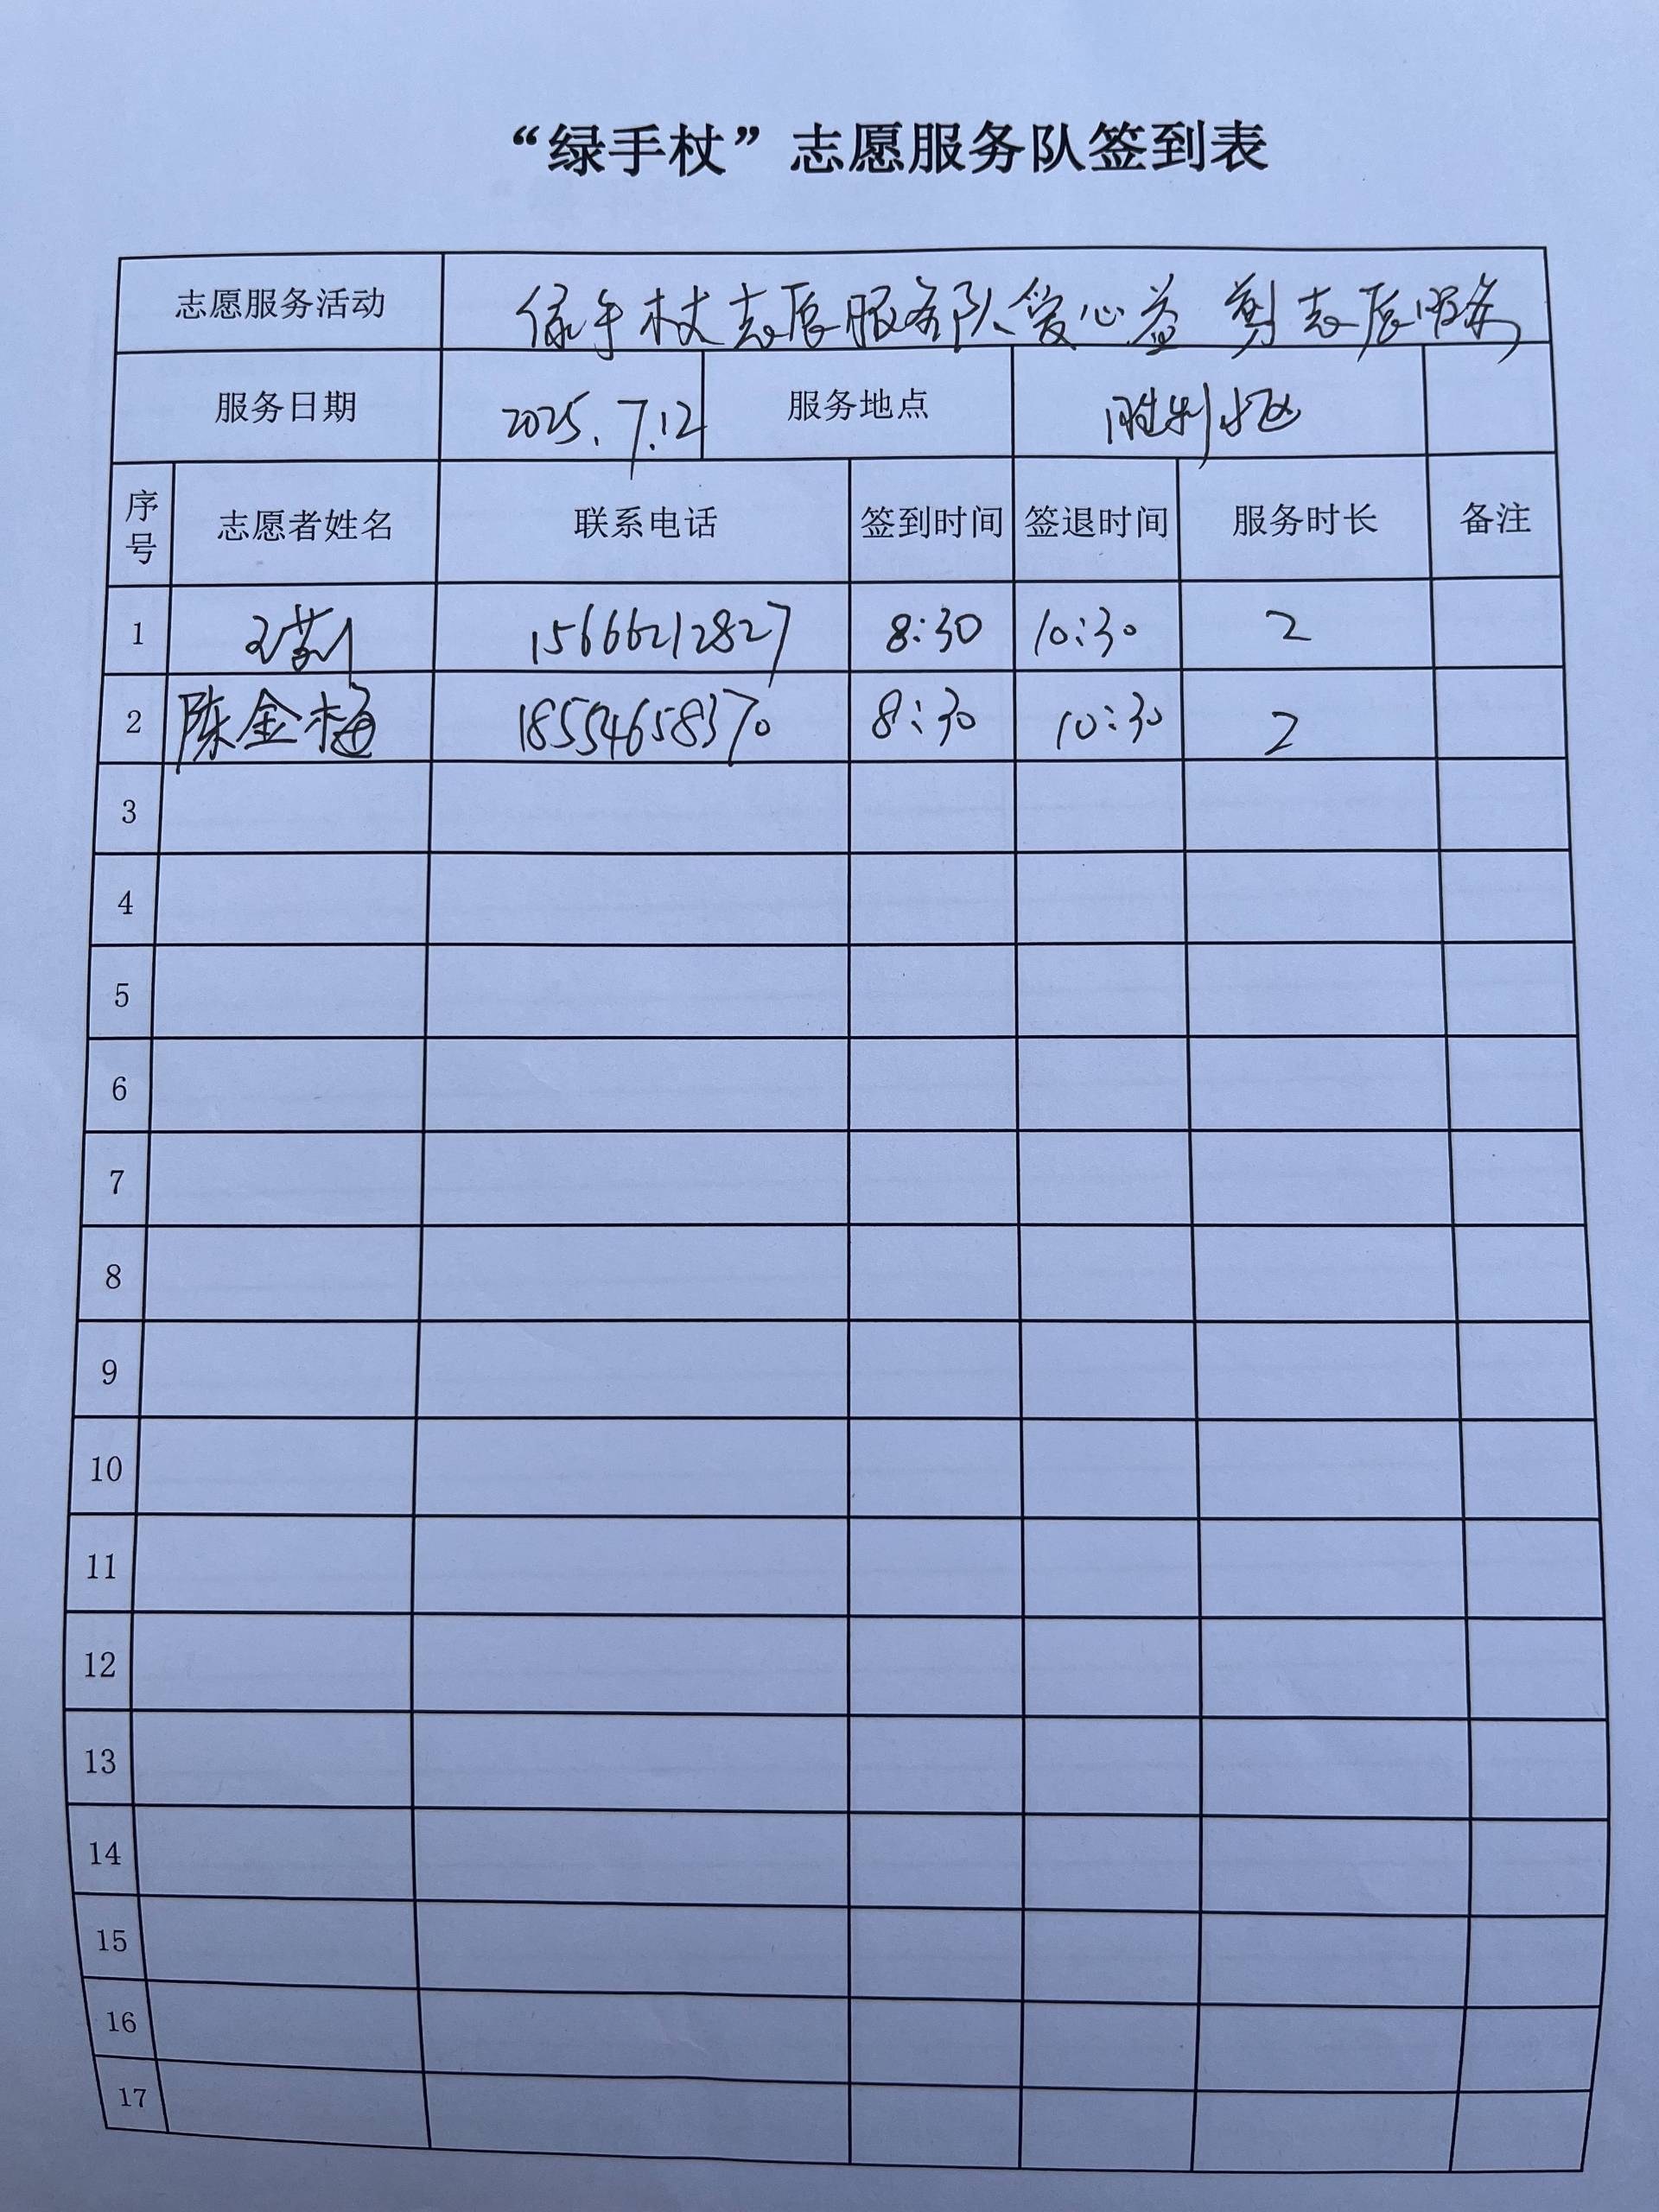 “绿手杖”志愿服务队签到表
志愿服务活动 绿手杖志愿服务队爱心益剪志愿服务
服务日期 2025.7.12 服务地点 胜利社区
序号 志愿者姓名 联系电话 签到时间 签退时间 服务时长 备注
1 王 15666212827 8:30 10:30 2
2 陈金梅 18554658370 8:30 10:30 2
3
4
5
6
7
8
9
10
11
12
13
14
15
16
17